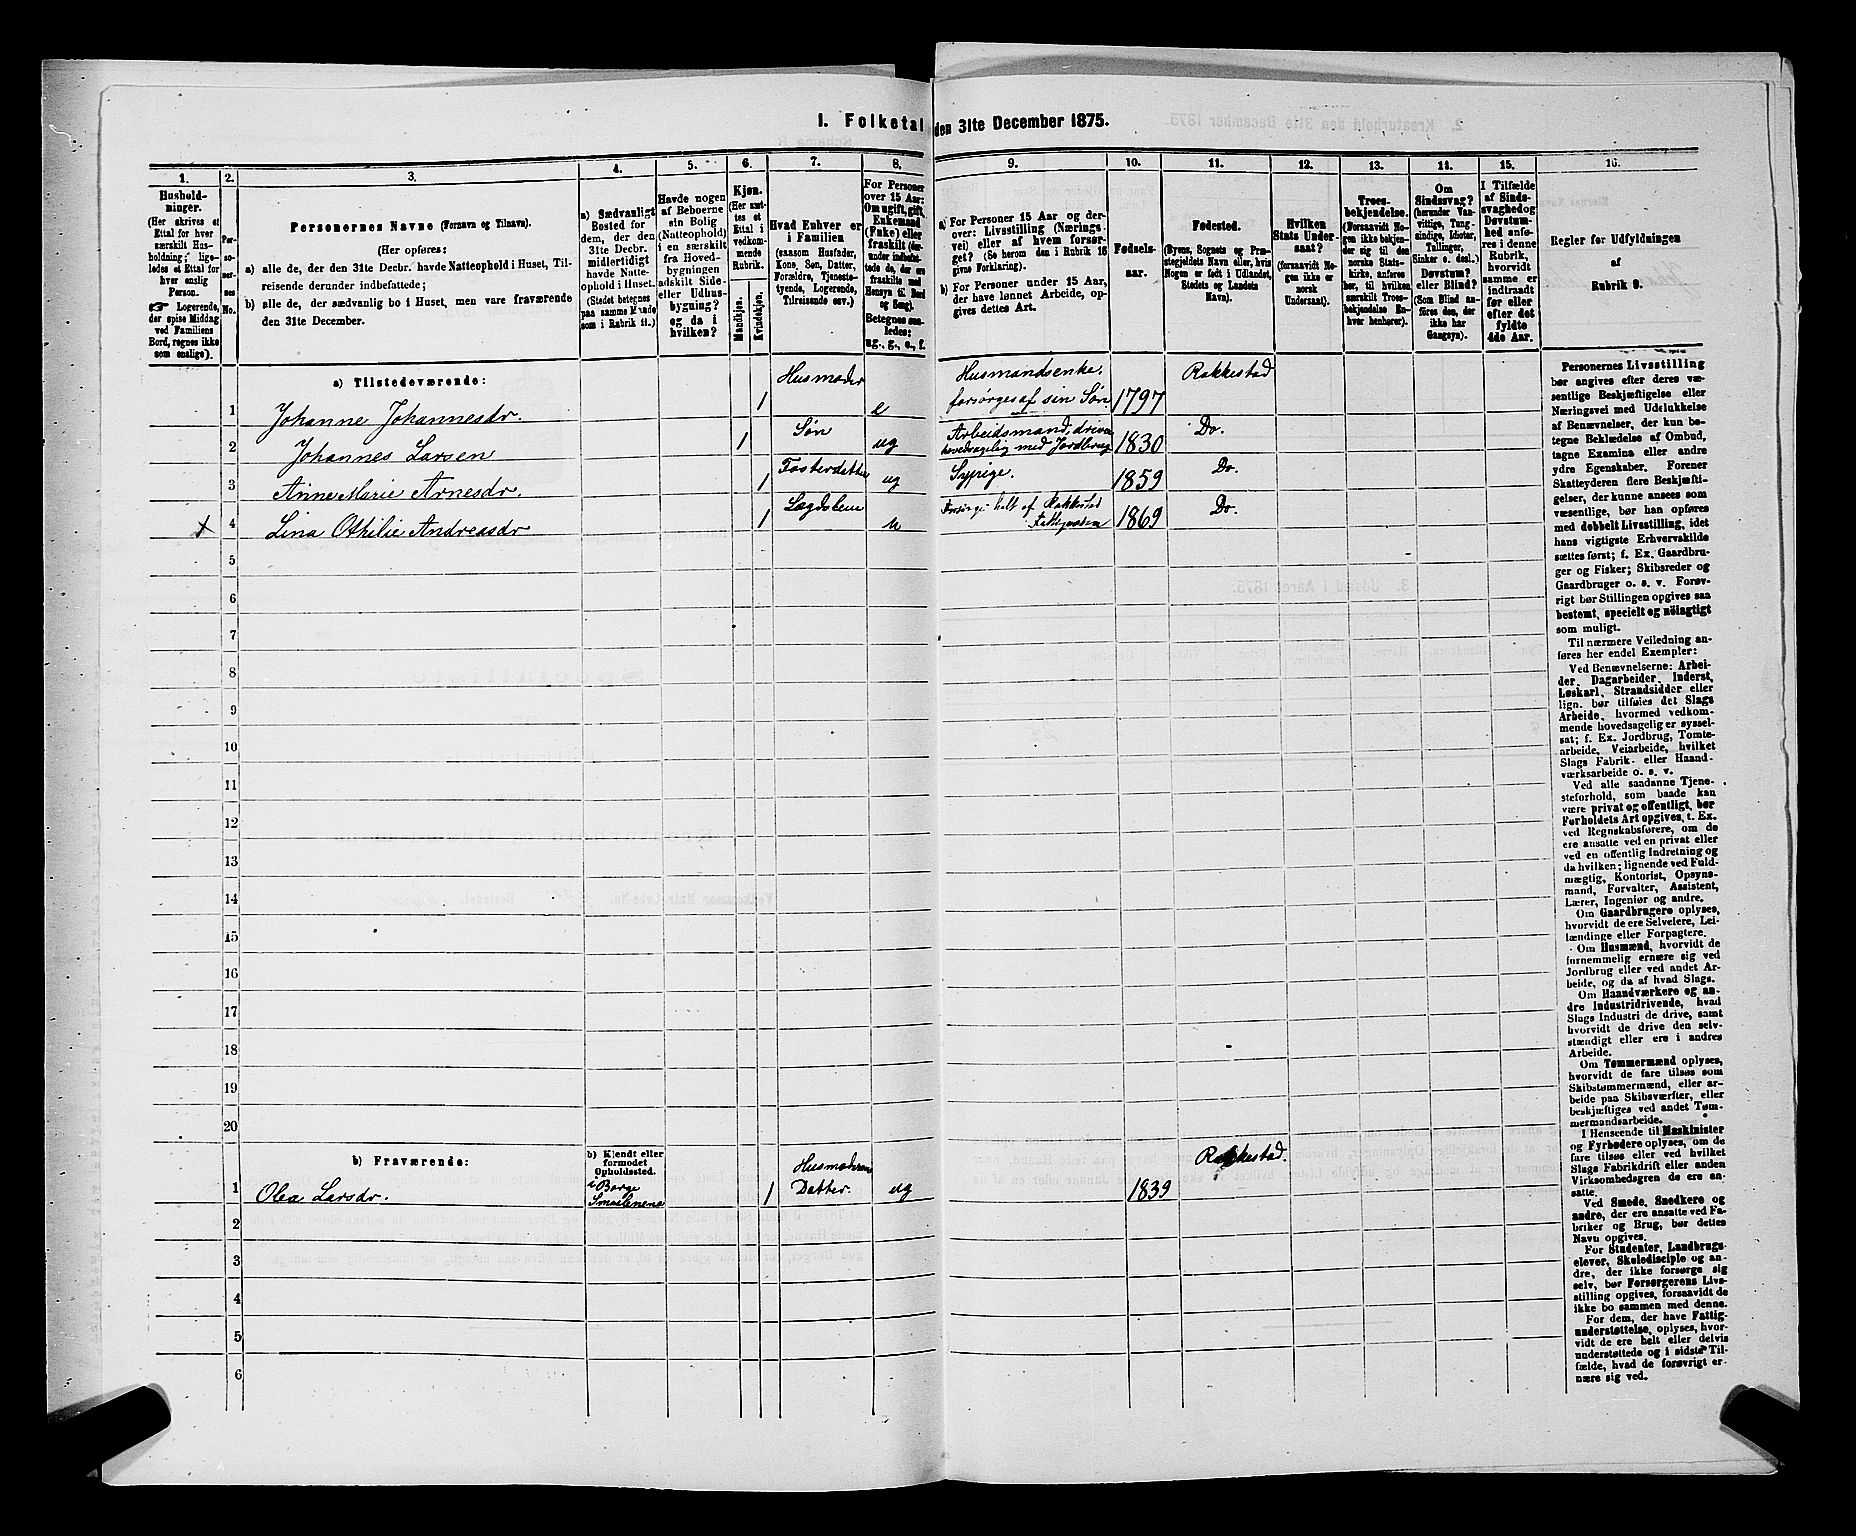 1. Folketal den 31te December 1875.
1. 2. 3. 4. 5. 6. 7. 8. 9. 10. 11. 12. 13. 14. 15. 16.
Hushold-
ninger.
(Her skrives et
Ettal for hver
særskilt Hus-
holdning; lige-
ledes et Ettal for
hver enslig
Person.
☞ Logerende,
der spise Middag
ved Familiens
Bord, regnes ikke
som enslige).
Per-
soner-
nes
No.
Personernes Navne (Fornavn og Tilnavn).
(Her opføres:
a) alle de, der den 31te Decbr. havde Natteophold i Huset, Til-
reisende derunder indbefattede;
b) alle de, der sædvanlig bo i Huset, men vare fraværende
den 31te December.
a) Sædvanligt
Bosted for
dem, der den
31te Decbr.
midlertidigt
havde Natte-
ophold i Huset.
(Stedet betegnes
paa samme Maade
som i Rubrik 11.)
Havde nogen
af Beboerne
sin Bolig
(Natteophold)
i en særskilt
fra Hoved-
bygningen
adskilt Side-
eller Udhus-
bygning?
og da i
hvilken?
Kjøn.
(Her sæt-
tes et
Ettal i
vedkom-
mende
Rubrik.
Mandkjøn.
Kvindekjøn.
Hvad Enhver er
i Familien
(saasom Husfader,
Kone, Søn, Datter,
Forældre, Tjeneste-
tyende, Logerende,
Tilreisende osv.)
For Personer
over 15 Aar:
Om ugift, gift,
Enkemand
(Enke) eller
fraskilt (der-
under indbefat-
tede de, der ere
fraskilte med
Hensyn til Bord
og Seng).
Betegnes saa-
ledes:
ug., g., e., f.
a) For Personer 15 Aar og der-
over: Livsstilling (Nærings-
vei) eller af hvem forsør-
get? (Se herom den i Rubrik 16
givne Forklaring).
b) For Personer under 15 Aar,
der have lønnet Arbeide, op-
gives dettes Art.
Fødsels-
aar.
Fødested.
(Byens, Sognets og Præ-
stegjeldets Navn eller, hvis
Nogen er født i Udlandet,
Stedets og Landets
Navn).
Hvilken
Stats Under-
saat?
(forsaavidt No-
gen ikke er
norsk
Undersaat).
Troes-
bekjendelse.
(Forsaavidt No-
gen ikke bekjen-
der sig til den
norske Stats-
kirke, anføres
her, til hvilken
særskilt Troes-
bekjendelse En-
hver henhører).
Om
Sindssvag?
(herunder Van-
vittige, Tung-
sindige, Idioter,
Tullinger,
Sinker o. desl.)
Døvstum?
eller Blind?
(Som Blind an-
føres den, der
ikke har
Gangsyn).
I Tilfælde
af Sinds-
svaghed og
Døvstum-
hed anfø-
res i denne
Rubrik,
hvorvidt
samme er
indtraadt
før eller
efter det
fyldte
4de Aar.
Regler for Udfyldningen
af
Rubrik 9.
a) Tilstedeværende:
1 Johanne Johannesdr. 1 Husmoder e Husmandsenke, forsørges af sin Søn. 1797 Rakkestad
2 Johannes Larsen 1 Søn ug Arbeidsmand, driver hovedsagelig med Jordbrug 1830 Do.
3 Anne Marie Arnesdr. 1 Fosterdatter ug Sypige. 1859 Do.
4 Lina Othilie Andreasdr 1 Lægdslem helt af Rakkestad 1869 Do.
5
6
7
8
9
10
11
12
13
14
15
16
17
18
19
20
b) Fraværende:
b) Kjendt eller
formodet
Opholdssted.
1 Olea Larsdr. i Borge Smaalenene 1 Husmoderens Datter. ug 1839 Rakkestad.
2
3
4
5
6
Personernes Livsstilling
bør angives efter deres væ-
sentlige Beskjæftigelse eller
Næringsvei med Udelukkelse
af Benævnelser, der kun be-
tegne Beklædelse af Ombud,
tagne Examina eller andre
ydre Egenskaber. Forener
Skatteyderen flere Beskjæfti-
gelser, der kunne ansees som
væsentlige, bør han opføres
med dobbelt Livsstilling, idet
hans vigtigste Erhvervskilde
sættes først; f. Ex. Gaardbru-
ger og Fisker; Skibsreder og
Gaardbruger o. s. v. Forøv-
rigt bør Stillingen opgives saa
bestemt, specielt og nøiagtigt
som muligt.
Til nærmere Veiledning an-
føres her endel Exempler:
Ved Benævnelserne: Arbei-
der, Dagarbeider, Inderst,
Løskarl, Strandsidder eller
lign. bør tilføies det Slags
Arbeide, hvormed vedkom-
mende hovedsagelig er syssel-
sat; f. Ex. Jordbrug, Tomte-
arbeide, Veiarbeide, hvilket
Slags Fabrik- eller Haand-
værksarbeide o. s. v.
Ved alle saadanne Tjene-
steforhold, som baade kan
være privat og offentligt, bør
Forholdets Art opgives, t. Ex.
ved Regnskabsførere, om de
ere ansatte ved en privat eller
ved en offentlig Indretning og
da hvilken; lignende ved Fuld-
mægtig, Kontorist, Opsyns-
mand, Forvalter, Assistent,
Lærer, Ingeniør og andre.
Om Gaardbrugere oplyses,
hvorvidt de ere Selveiere, Lei-
lændinge eller Forpagtere.
Om Husmænd, hvorvidt de
fornemmelig ernære sig ved
Jordbrug eller ved andet Ar-
beide, og da af hvad Slags.
Om Haandværkere og an-
dre Industridrivende, hvad
Slags Industri de drive, samt
hvorvidt de drive den selv-
stændigt eller ere i andres
Arbeide.
Om Tømmermænd oplyses,
hvorvidt de fare tilsøs som
Skibstømmermænd, eller ar-
beide paa Skibsværfter, eller
beskjæftiges ved andet Tøm-
mermandsarbeide.
I Henseende til Maskinister
og Fyrbødere oplyses, om de
fare tilsøs eller ved hvilket
Slags Fabrikdrift eller anden
Virksomhedsgren de ere an-
satte.
Ved Smede, Snedkere og
andre, der ere ansatte ved Fa-
briker og Brug, bør dettes
Navn opgives.
For Studenter, Landbrugs-
elever, Skoledisciple og an-
dre, der ikke forsørge sig
selv, bør Forsørgerens Livs-
stilling opgives, forsaavidt de
ikke bo sammen med denne.
For dem, der have Fattig-
understøttelse, oplyses, hvor-
vidt de ere helt eller delvis
understøttede og i sidste Til-
fælde, hvad de forøvrigt er-
nære sig ved.